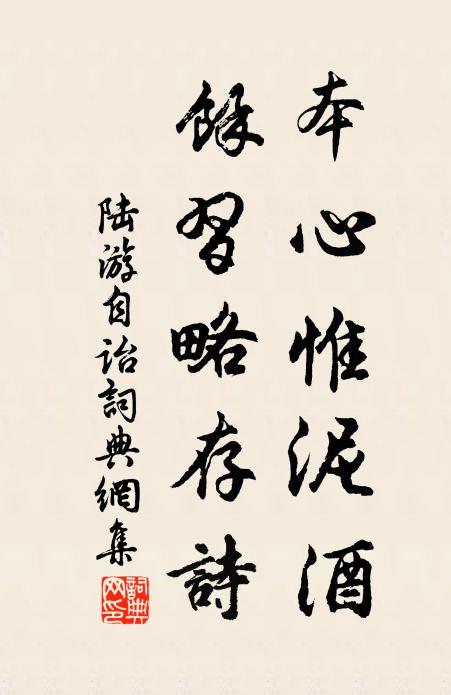 本心惟泥酒
餘習略存詩
陸游自詒詞典網集
詞典网印